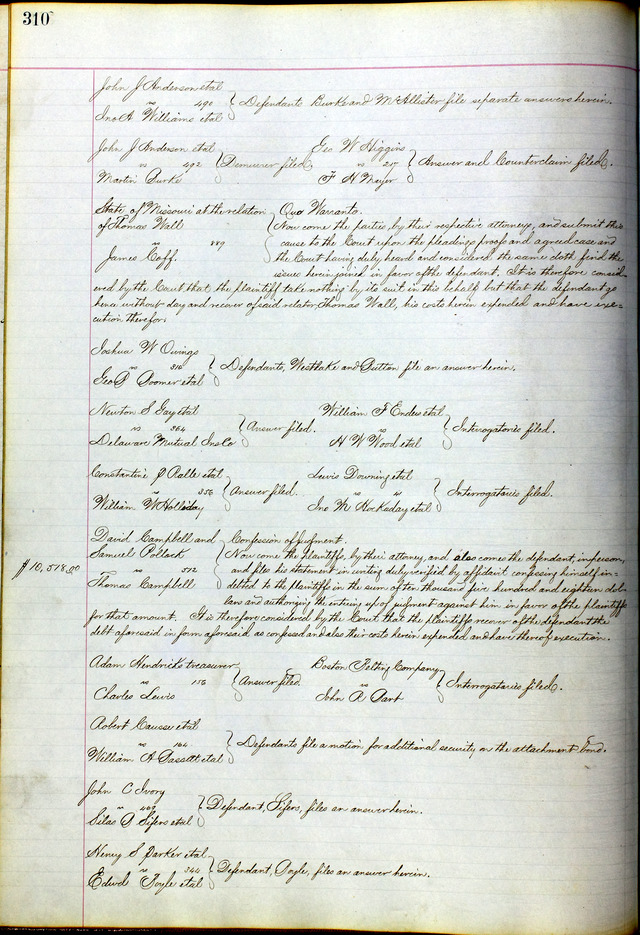 310
John J Anderson etal
vs 490 Defendants Burke and McAllister file separate answers herein.
Jno A Williams etal
John J Anderson etal
vs 492 Demurrer filed.
Martin Burke
Geo W Higgins
vs 217 Answer and Counterclaim filed.
F H Meyer
State of Missouri at the relation Quo Warranto.
of Thomas Wall Now come the parties, by their respective attorneys, and submit this
vs 889 cause to the Court upon the pleadings proofs and agreed case and
James Coff. the Court having duly heard and considered the same doth find the
issues herein joined in favor of the defendant. It is therefore consid=
ered by the Court that the plaintiff take nothing by its suit in this behalf but that the defendant go
hence without day and recover of said relator, Thomas Wall, his costs herein expended and have exe=
cution therefor.
Joshua W Owings
vs 310 Defendants, Westlake and Button file an answer herein.
Geo P Doomer etal
Newton S Gay etal
vs 364 Answer filed.
Delaware Mutual Ins Co
William F Enders etal
vs Interrogatories filed.
H W Wood etal
Constantine J Ralle etal
vs 355 Answer filed.
William W Holladay
Lewis Downing etal
vs Interrogatories filed.
Jno M Hockaday etal
David Campbell and Confession of judgment.
Samuel Pollack Now come the plaintiffs, by their attorney, and also comes the defendant, in person,
$10,518.00 vs 572 and files his statement in writing duly verified by affidavit confessing himself in=
Thomas Campbell debted to the plaintiffs in the sum of ten thousand five hundred and eighteen dol=
lars and authorizing the entering up of judgment against him in favor of the plaintiffs
for that amount. It is therefore considered by the Court that the plaintiffs recover of the defendant the
debt aforesaid in form aforesaid as confessed and also their costs herein expended and have thereof execution.
Adam Hendricks treasurer
vs 156 Answer filed.
Charles Lewis
Boston Felting Company
vs Interrogatories filed.
John R Dart
Robert Causse etal
vs 164 Defendants file a motion for additional security on the attachment bond.
William A Dassett etal
John C Ivory
vs 409 Defendant, Sifers, files an answer herein.
Silas D Sifers etal
Henry S Parker etal
vs 344 Defendant, Doyle, files an answer herein.
Edwd Doyle etal